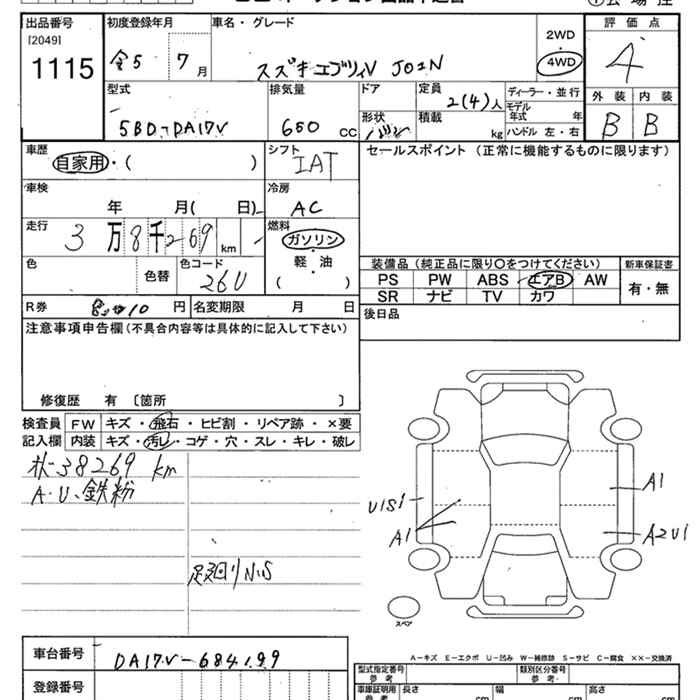 出品番号 初度登録年月 車名・グレード 2WD 評価点
[2049]
1115 令5 7月 スズキエブリィV JOIN ・ 4WD 4
型式 排気量 ドア 定員 2(4)人 ディーラー・並行 外装 内装
5BD-DA17V 660 cc 形状 バン 積載 kg モデル年式 年 ハンドル 左・右 B B
車歴 シフト セールスポイント (正常に機能するものに限ります)
自家用・( ) IAT
車検 冷房
年 月( 日) AC
走行 燃料
3万8千269 km ガソリン
軽・油
色 色替 色コード ( )
26U
装備品 (純正品に限り○をつけてください) 新車保証書
PS PW ABS エアB AW 有・無
SR ナビ TV カワ
R券 円 名変期限 月 日 後日品
注意事項申告欄 (不具合内容等は具体的に記入して下さい)
修復歴 有 [箇所 ]
検査員 FW キズ・飛石・ヒビ割・リペア跡・×要
記入欄 内装 キズ・汚レ・コゲ・穴・スレ・キレ・破レ
38269 km
A・U、鉄粉
足廻りNIS
U1S1
A1
A1
A2U1
スペア
A-キズ E-エクボ U-凹み W-補修跡 S-サビ C-腐食 ××-交換済
車台番号 DA17V-684199 型式指定番号 類別区分番号
参考 参考
登録番号 車庫証明用 長さ 幅 高さ
参考 cm cm cm